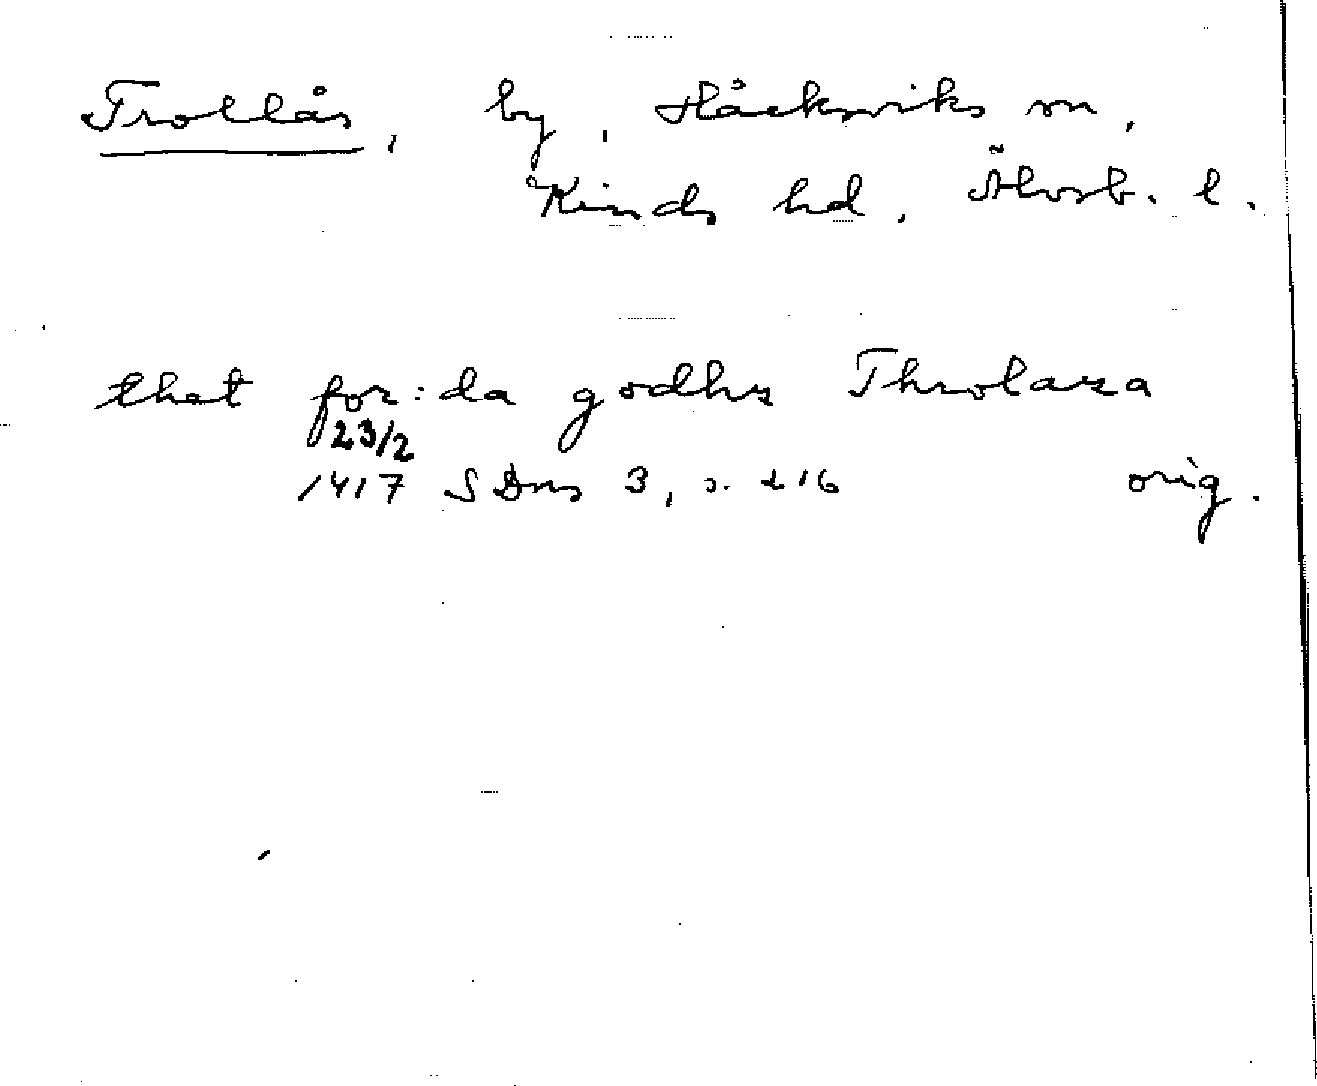 Trollås, by, Håcksviks sn,
Kinds hd, Älvsb. l.
that for:da godhz Throlaza
23/2
1417 SDns 3, s. 216 orig.